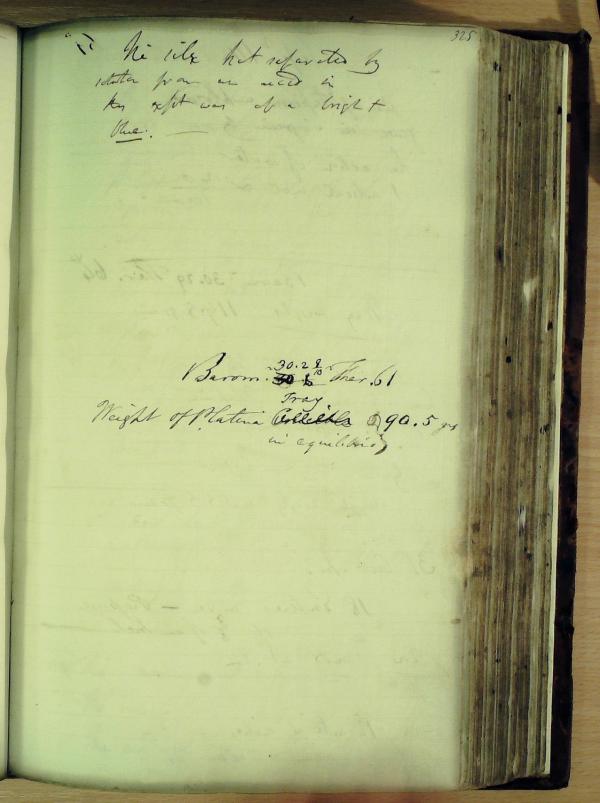 325
The silk hat separated by
solution from an acid in
this expt was of a bright
blue. —
Barom. 30.2 9/10 Ther. 61
Tray
Weight of Platina Crucible 590.5 grs
in equilibrio